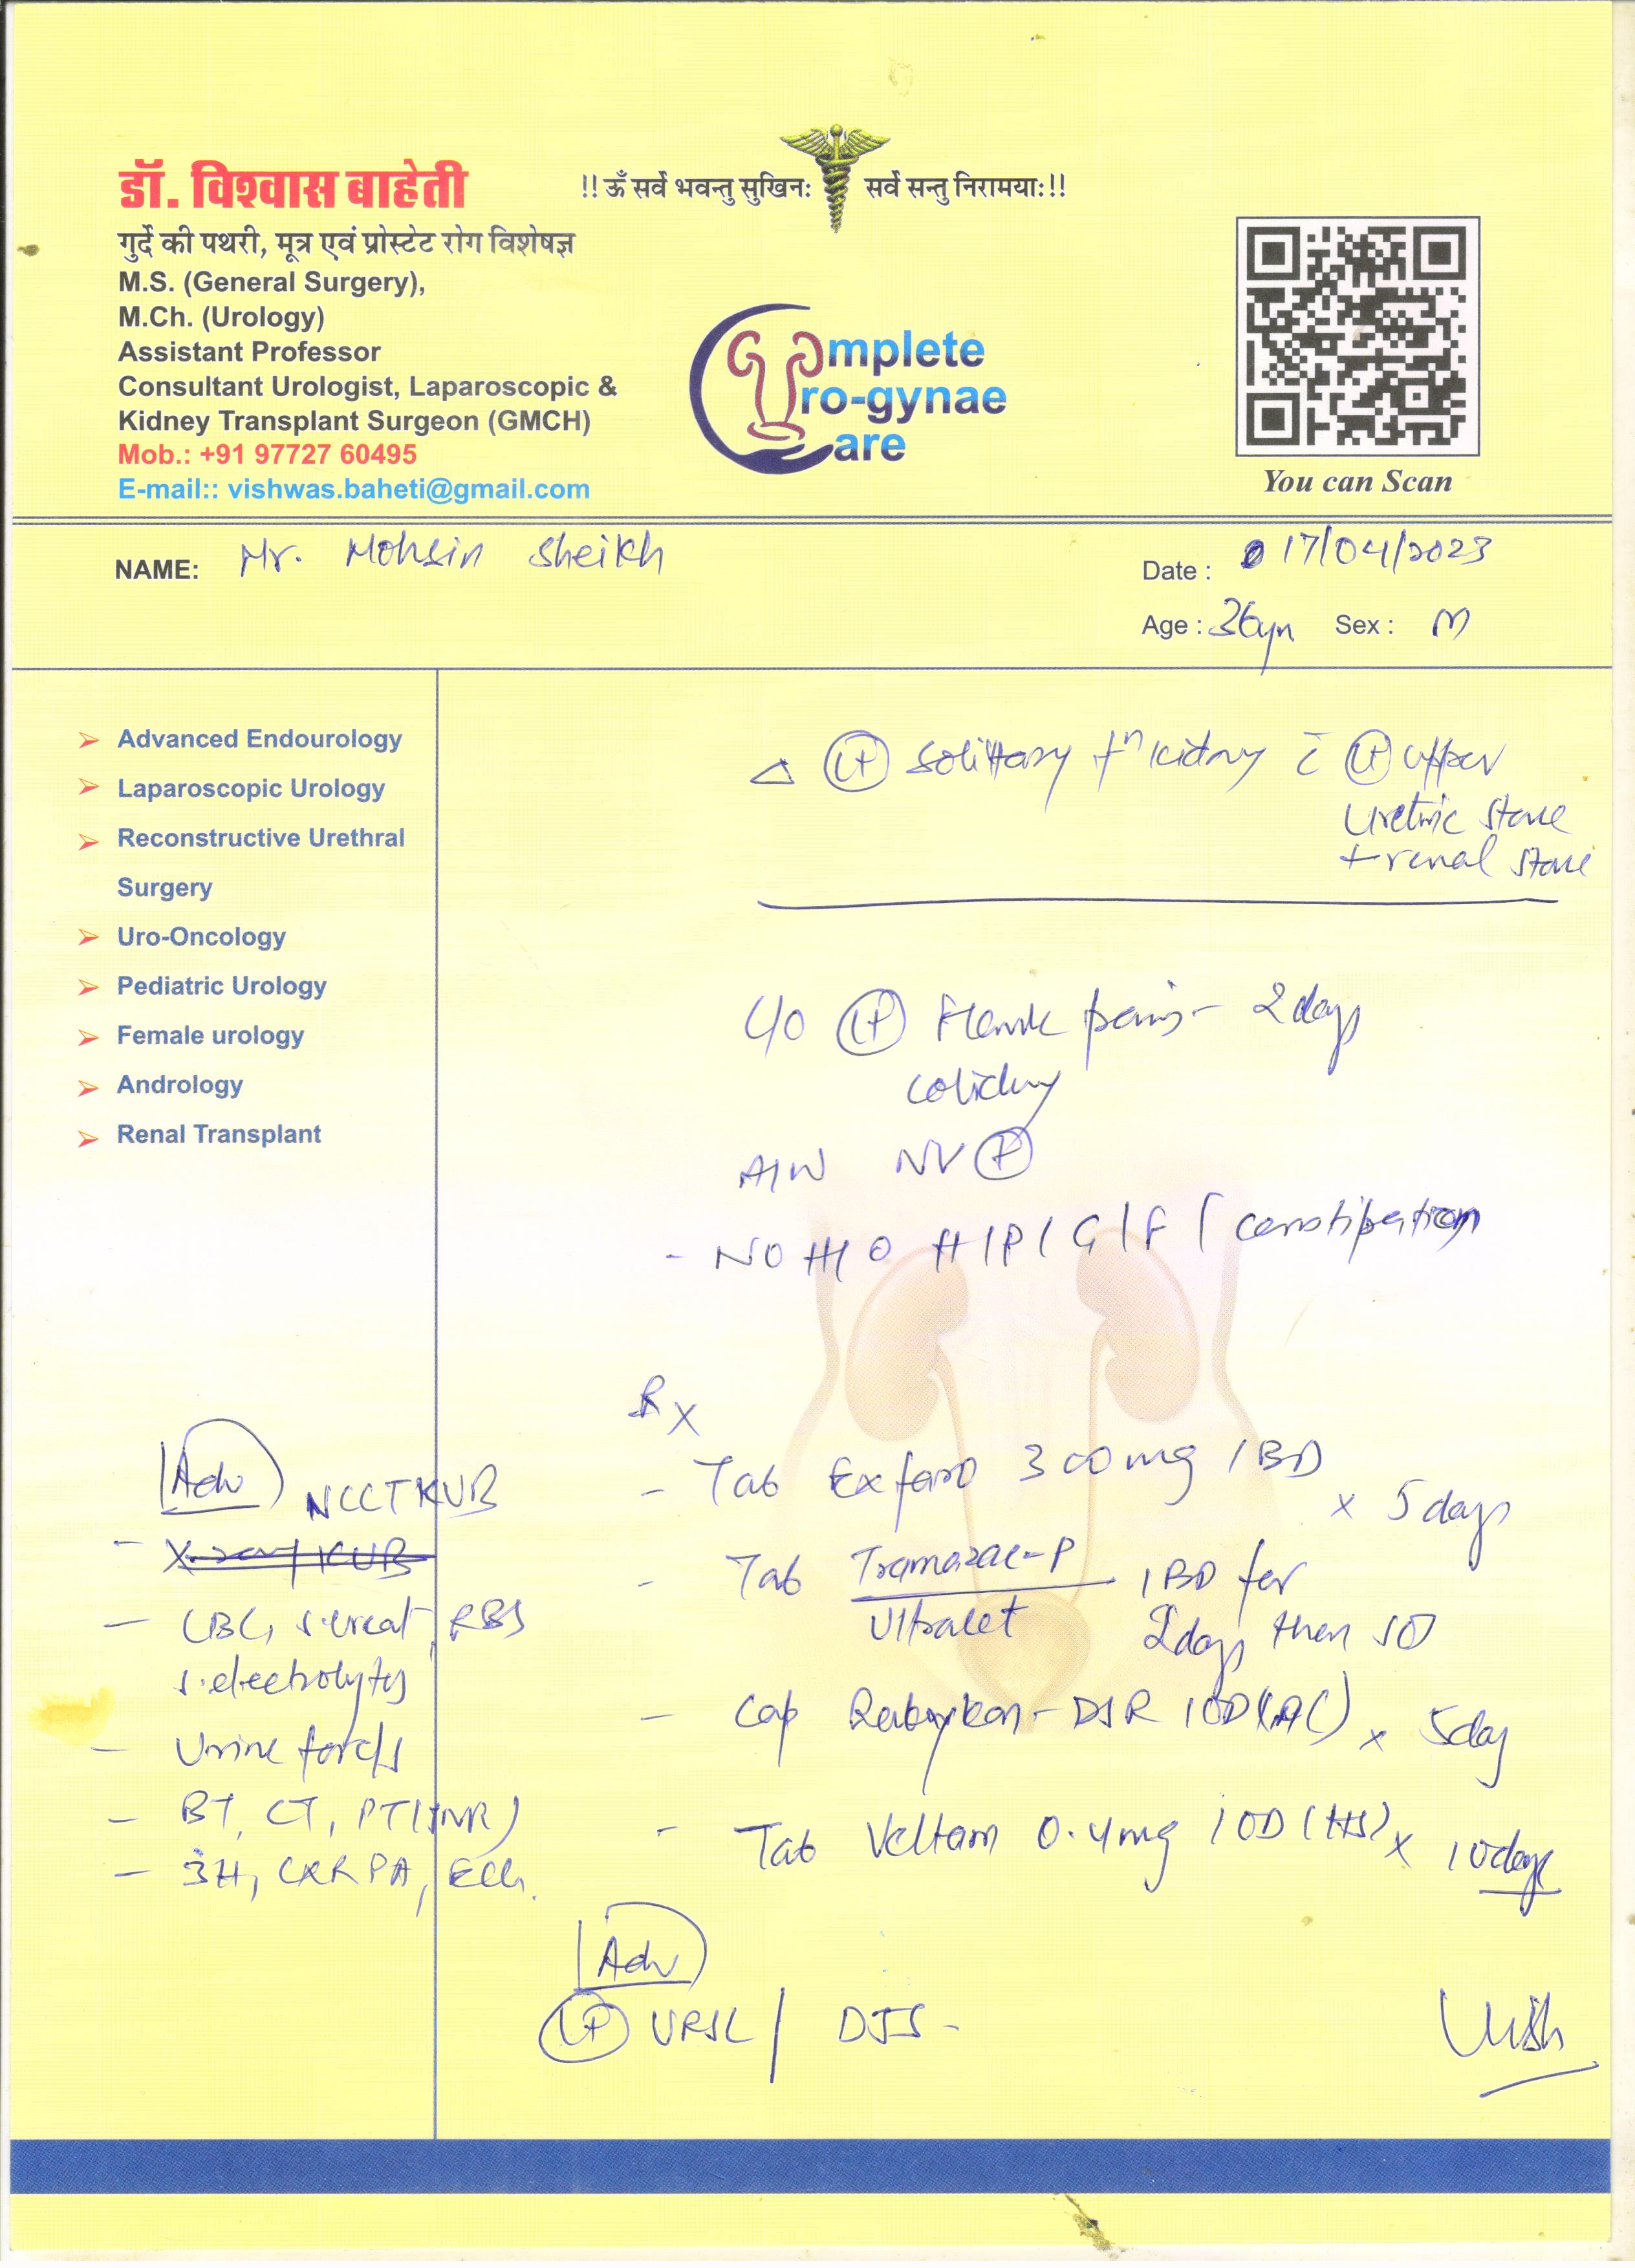 !! ॐ सर्वे भवन्तु सुखिनः सर्वे सन्तु निरामयाः!!
डॉ. विश्वास बाहेती
गुर्दे की पथरी, मूत्र एवं प्रोस्टेट रोग विशेषज्ञ
M.S. (General Surgery),
M.Ch. (Urology)
Assistant Professor
Consultant Urologist, Laparoscopic &
Kidney Transplant Surgeon (GMCH)
Mob.: +91 97727 60495
E-mail:: vishwas.baheti@gmail.com
mplete
ro-gynae
are
You can Scan
NAME: Mr. Mohsin Sheikh
Date : 17/04/2023
Age : 36yr Sex : M
Advanced Endourology
Laparoscopic Urology
Reconstructive Urethral
Surgery
Uro-Oncology
Pediatric Urology
Female urology
Andrology
Renal Transplant
△ Lt solittary fn kidney c̄ Lt upper
Uretric stone
+ renal stone
C/O Lt Flank pain - 2 days
colicky
A/W NV +
- NO H/O H/P/G/F/ constipation
Rx
- Tab 300mg 1BD x 5 days
- Tab Tramazac-P 1BD for
Ultracet 2days then SOS
- Cap -DSR 1OD(AC) x 5day
- Tab Veltam 0.4mg 1OD (HS) x 10days
Adv NCCT KUB
- X-ray KUB
- CBC, s.creat, RBS
s.electrolytes
- Urine for c/s
- BT, CT, PT(INR)
- 3H, CXR PA,
Adv
Lt URSL / DJS -